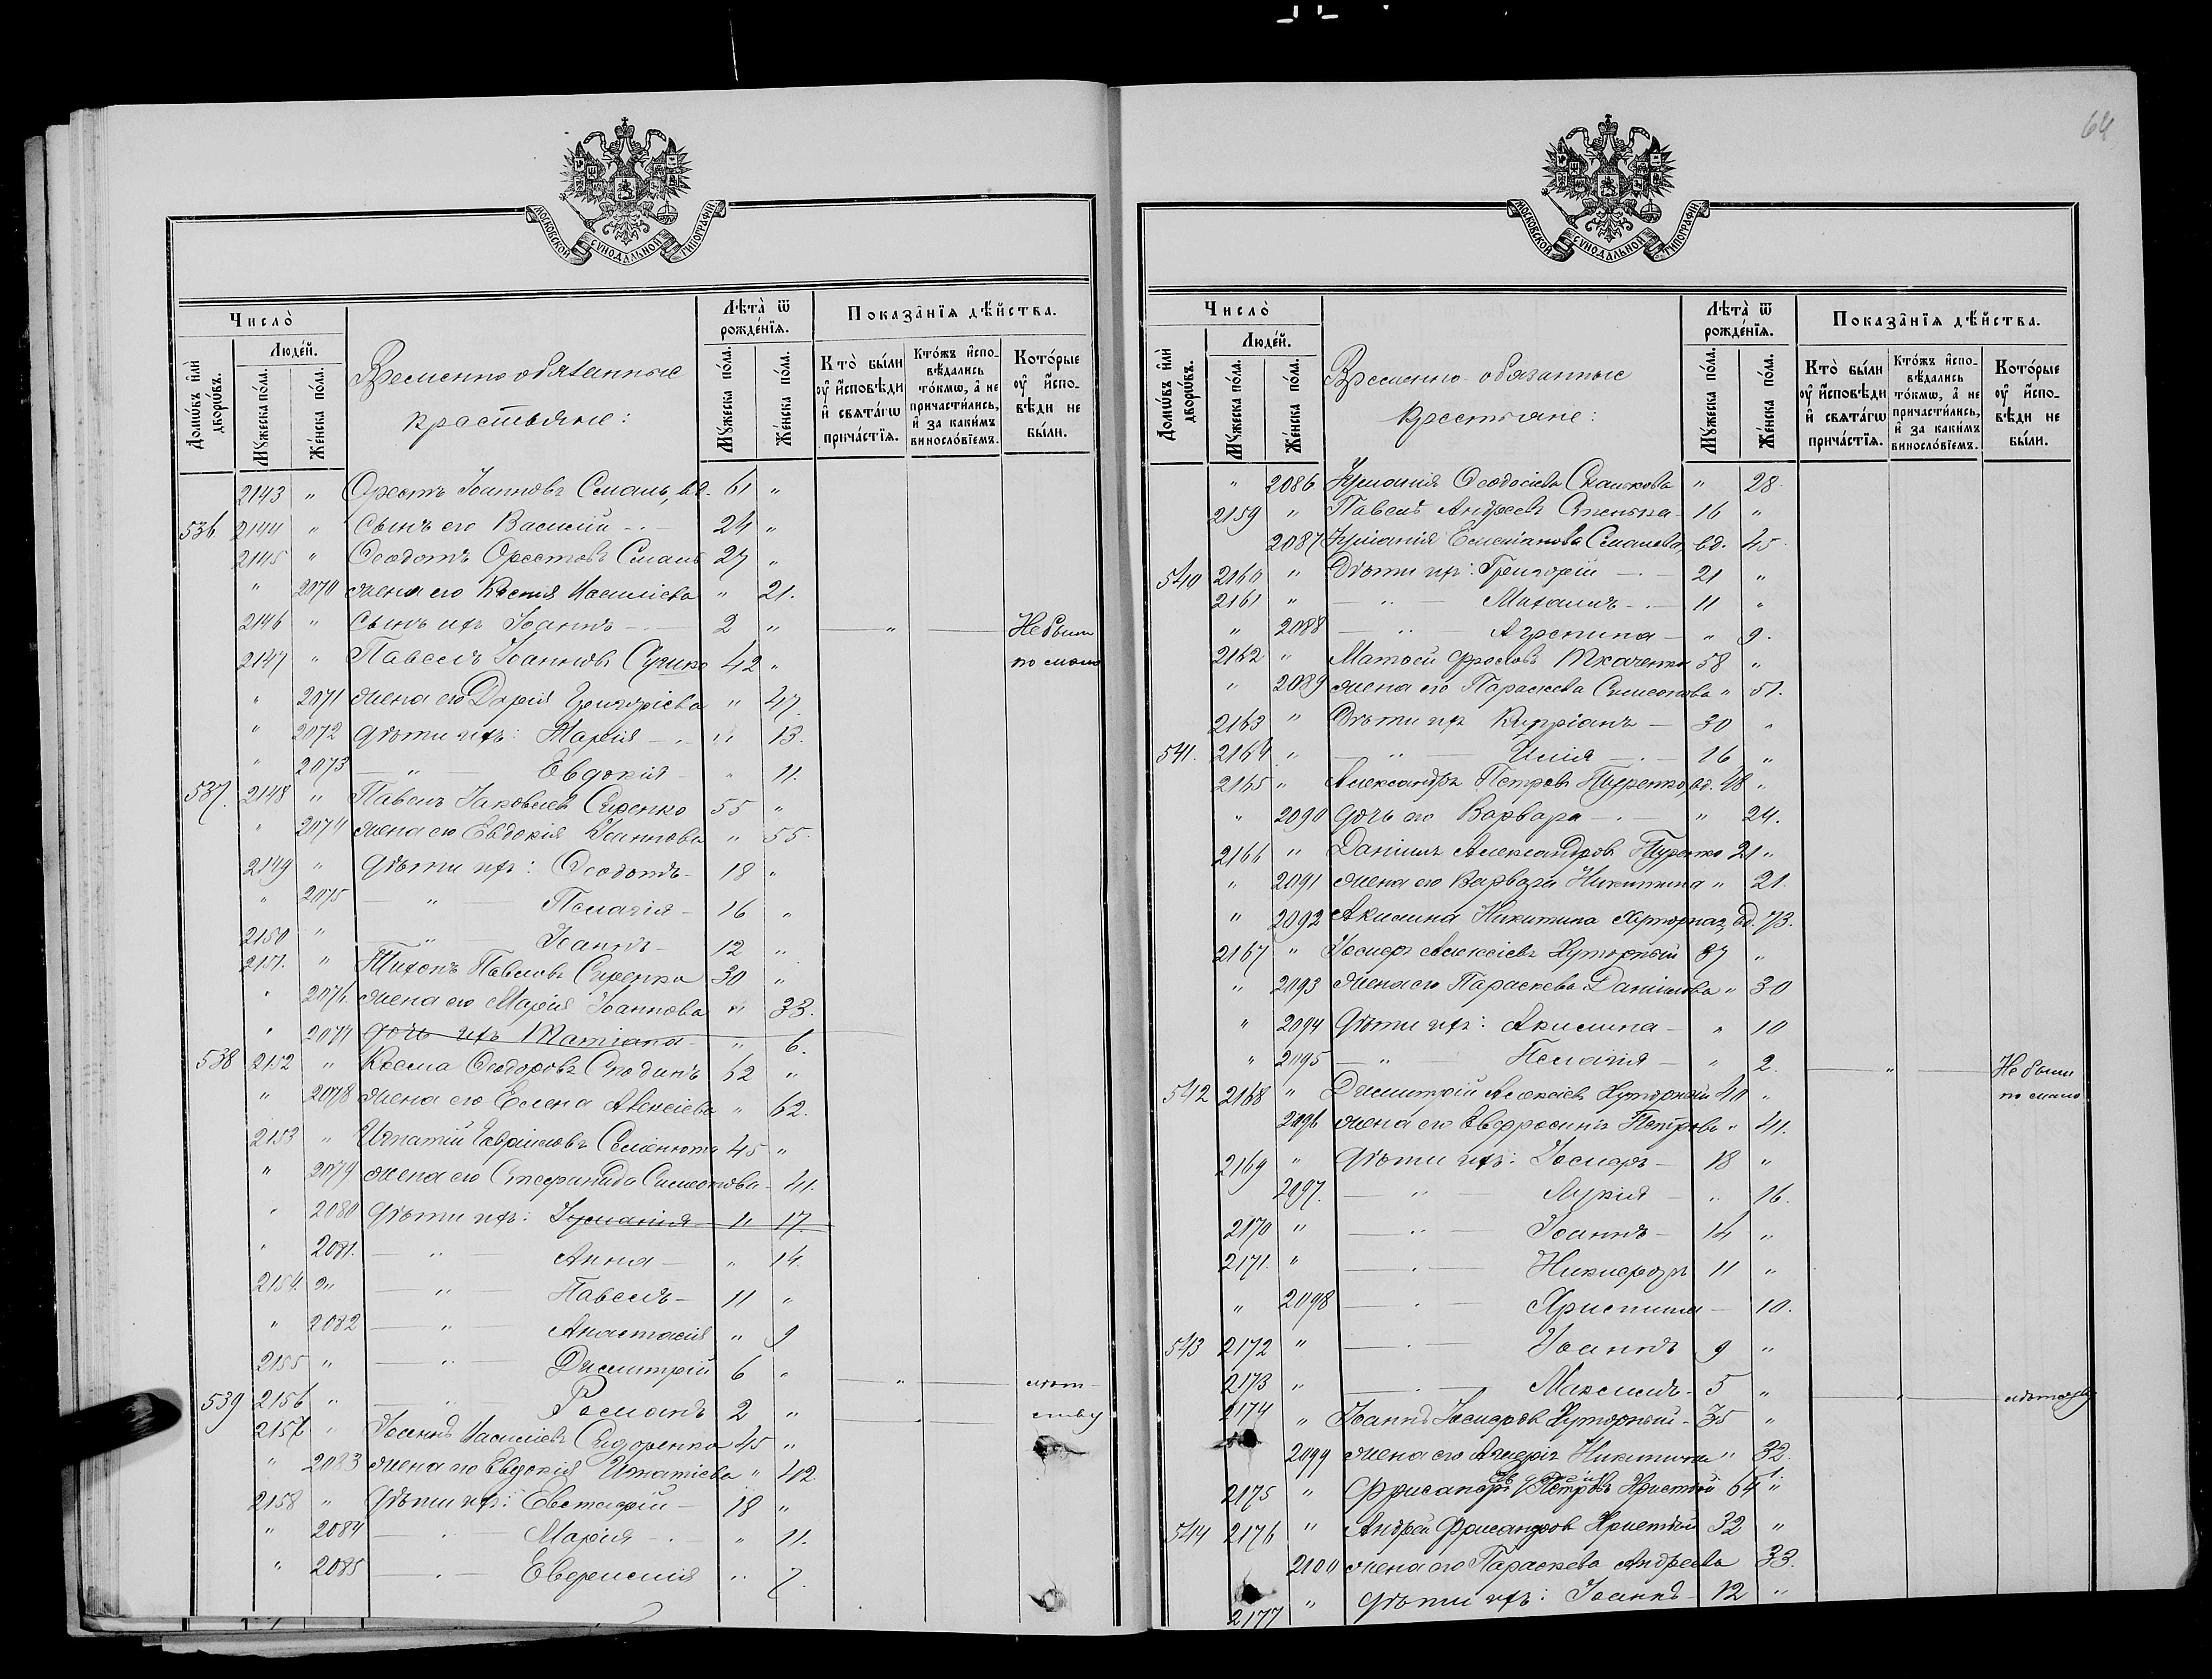 64
МОСКОВСКОЙ СУНОДАЛЬНОЙ ТИПОГРАФІИ
Число̀
Людéй.
Домѡ́въ и҆лѝ дворѡ́въ.
Мꙋ́жеска по́ла.
Же́нска по́ла.
Временно обязанные
крестьяне:
Лѣ́та ѿ рожде́нїѧ.
Мꙋ́жеска по́ла.
Же́нска по́ла.
Показа̂нїѧ дѣ́йства.
Кто̀ бы́ли оу҆ и҆сповѣ́ди и҆ свѧта́гѡ прича́стїѧ.
Кто́жъ и҆сповѣ́дались то́кмѡ, а҆ не причасти́лись, и҆ за каки́мъ винослόвїемъ.
Кото́рые оу҆ и҆сповѣ́ди не бы́ли.
2143 " Орестъ Іоанновъ Смаль, вд. 61 "
536 2144 " Сынъ его Василій - 24 "
2145 " Ѳеодотъ Орестовъ Смаль 27 "
" 2070 жена его Ксенія Василіева " 21.
2146 " Сынъ ихъ Іоаннъ - 2 " " Не были
2147 " Павелъ Іоанновъ 42 " по мало
" 2071 жена его Дарія Григоріева " 47.
" 2072 дѣти ихъ: Марія - " 13.
" 2073 " Евдокія - " 11.
537. 2148 " Павелъ Іаковлевъ Сиренко 55 "
" 2074 жена его Евдокія Іоаннова " 55.
2149 " дѣти ихъ: Ѳеодотъ - 18 "
" 2075 " Пелагія - 16 "
2150 " " Іоаннъ - 12 "
2151. " Тихонъ Павловъ Сиренко 30 "
" 2076. жена его Марія Іоаннова " 33.
" 2077 дочь ихъ Татіана - " 6.
538 2152 " Косма Ѳеодоровъ 62 "
" 2078 жена его Елена Алексіева " 62.
2153 " Игнатій Гавріиловъ Семенюта 45 "
" 2079 жена его Стефанида Симеонова - 41.
" 2080 дѣти ихъ: Іуліанія " 17.
" 2081. " Анна - " 14.
2154. " " Павелъ - 11 "
" 2082 " Анастасія " 9
2155 " " Димитрій 6 " " лѣт-
539 2156 " " Романъ 2 " " ству
2157 " Іоаннъ Василіевъ Сидоренко 45 "
" 2083 жена его Евдокія Игнатіева " 42.
2158 " дѣти ихъ: Евстафій - 18 "
" 2084 " Марія - " 11.
" 2085 " Евфимія " 7.
МОСКОВСКОЙ СУНОДАЛЬНОЙ ТИПОГРАФІИ
Число̀
Людéй.
Домѡ́въ и҆лѝ дворѡ́въ.
Мꙋ́жеска по́ла.
Же́нска по́ла.
Временно-обязанные
крестьяне:
Лѣ́та ѿ рожде́нїѧ.
Мꙋ́жеска по́ла.
Же́нска по́ла.
Показа̂нїѧ дѣ́йства.
Кто̀ бы́ли оу҆ и҆сповѣ́ди и҆ свѧта́гѡ прича́стїѧ.
Кто́жъ и҆сповѣ́дались то́кмѡ, а҆ не причасти́лись, и҆ за каки́мъ винослόвїемъ.
Кото́рые оу҆ и҆сповѣ́ди не бы́ли.
" 2086 Іуліанія Ѳеодосіева " 28.
2159 " Павелъ Андреевъ 16 "
2087 Іуліанія Емеліанова Смалева, вд. 45.
540 2160 " Дѣти ихъ: Григорій - 21 "
2161 " " Михаилъ - 11 "
" 2088 " Агрепина - " 9.
2162 " Матѳей Фроловъ Ткаченко 58 "
" 2089 жена его Параскева Симеонова " 51.
2163 " Дѣти ихъ Кипріанъ - 30 "
541. 2164 " " Илія - 16 "
2165 " Александръ Петровъ вд. 48 "
" 2090 дочь его Варвара - " 24.
2166 " Даніилъ Александровъ 21 "
" 2091 жена его Варвара Никитина " 21.
" 2092 Акилина Никитина Хуторная, вд. 73.
2167 " Іосифъ Алексіевъ Хуторный 37 "
" 2093 жена его Параскева Даніилова " 30
" 2094 дѣти ихъ: Акилина - " 10
" 2095 " Пелагія - " 2. " Не были
542 2168 " Димитрій Алексіевъ Хуторный 40 " по мало
2096 жена его Евфросинія Петрова " 41.
2169 " дѣти ихъ: Іосифъ - 18 "
2097. " Лукія - " 16.
2170 " " Іоаннъ - 14 "
2171. " " Никифоръ 11 "
" 2098 " Христина - 10.
543 2172 " " Іоаннъ 9 "
2173 " " Максимъ - 5 " " лѣтству
2174 " Іоаннъ Іосифовъ Хуторный - 35 "
2099 жена его Никитина " 32.
2175 " Петровъ 64 "
544 2176 " Андрей 32 "
2100 жена его Параскева Андреева 33.
2177 " дѣти ихъ: Іоаннъ - 12 "